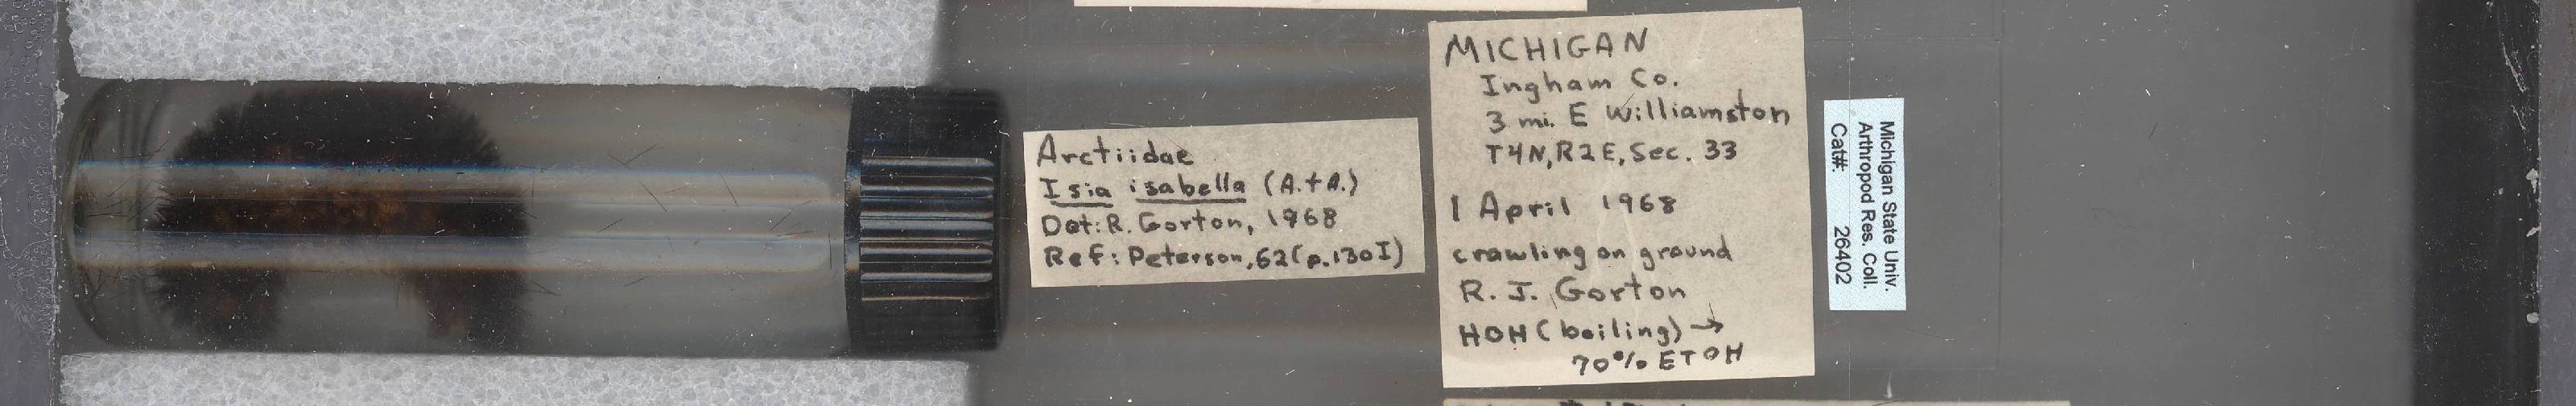 Arctiidae
Isia isabella (A.+A.)
Det: R. Gorton, 1968
Ref: Peterson, 62 (p.130I)
MICHIGAN
Ingham Co.
3 mi. E Williamston
T4N, R2E, Sec. 33
1 April 1968
crawling on ground
R. J. Gorton
HOH (boiling) →
70% ETOH
Michigan State Univ.
Arthropod Res. Coll.
Cat#. 26402